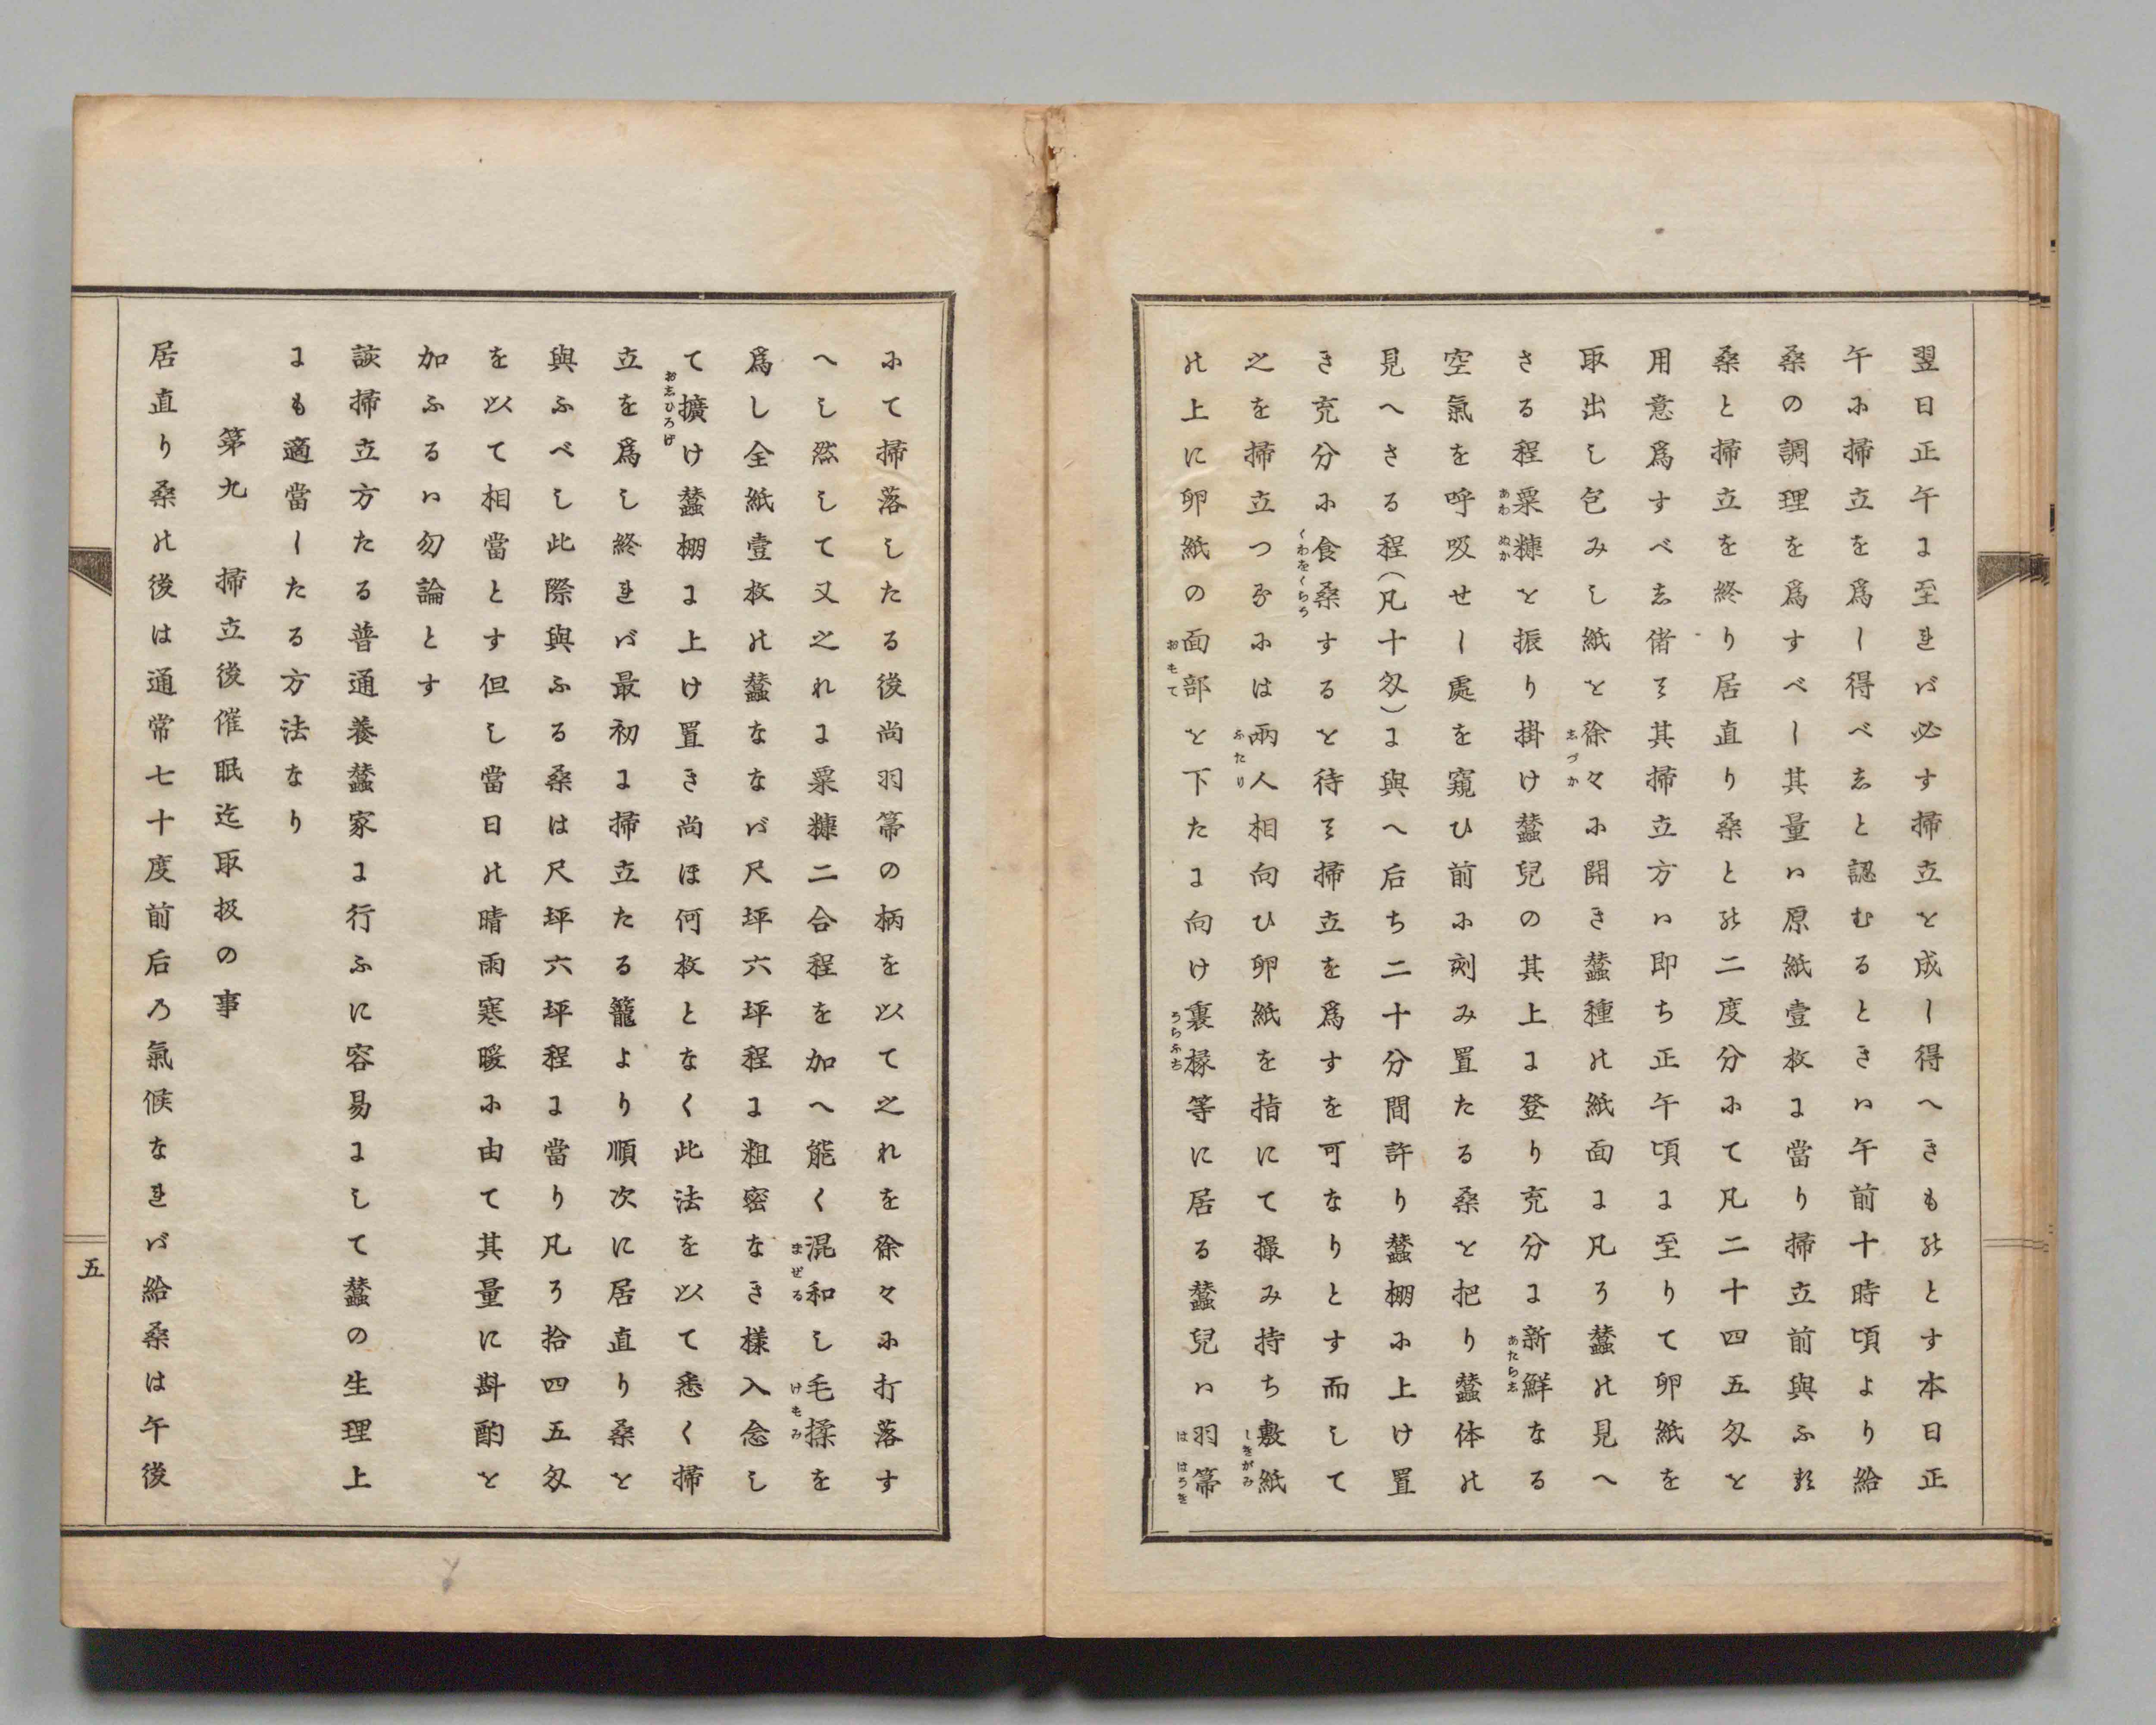 翌日正午に至れば必す掃立を成し得へきものとす本日正
午に掃立を為し得べしと認むるときハ午前十時頃より給
桑の調理を為すべし其量ハ原紙壹枚に當り掃立前與ふる
桑と掃立を終り居直り桑との二度分にて凡二十四五匁を
用意為すべし偖て其掃立方ハ即ち正午頃に至りて卵紙を
取出し包みし紙を徐々に開き蠶種の紙面に凡ろ蠶の見へ
さる程粟糠を振り掛け蠶兒の其上に登り充分に新鮮なる
空氣を呼吸せし處を窺ひ前に刻み置たる桑を把り蠶体の
見へさる程（凡十匁）に與へ后ち二十分間許り蠶棚に上け置
き充分に食桑するを待て掃立を為すを可なりとす而して
之を掃立つるには兩人相向ひ卵紙を指にて撮み持ち敷紙
の上に卵紙の面部を下たに向け裏椽等に居る蠶兒ハ羽箒
にて掃落したる後尚羽箒の柄を以て之れを徐々に打落す
へし然して又之れに粟糠二合程を加へ能く混和し毛揉を
爲し全紙壹枚の蠶ならば尺坪六坪程に粗密なき様入念し
て擴け蠶棚に上け置き尚ほ何枚となく此法を以て悉く掃
立を爲し終れば最初に掃立たる籠より順次に居直り桑を
與ふべし此際與ふる桑は尺坪六坪程に當り凡ろ拾四五匁
を以て相當とす但し當日の晴雨寒暖に由て其量に斟酌を
加ふるハ勿論とす
該掃立方たる普通養蠶家に行ふに容易にして蠶の生理上
にも適當したる方法なり
第九　掃立後催眠迄取扱の事
居直り桑の後は通常七十度前后の氣候なれば給桑は午後
五